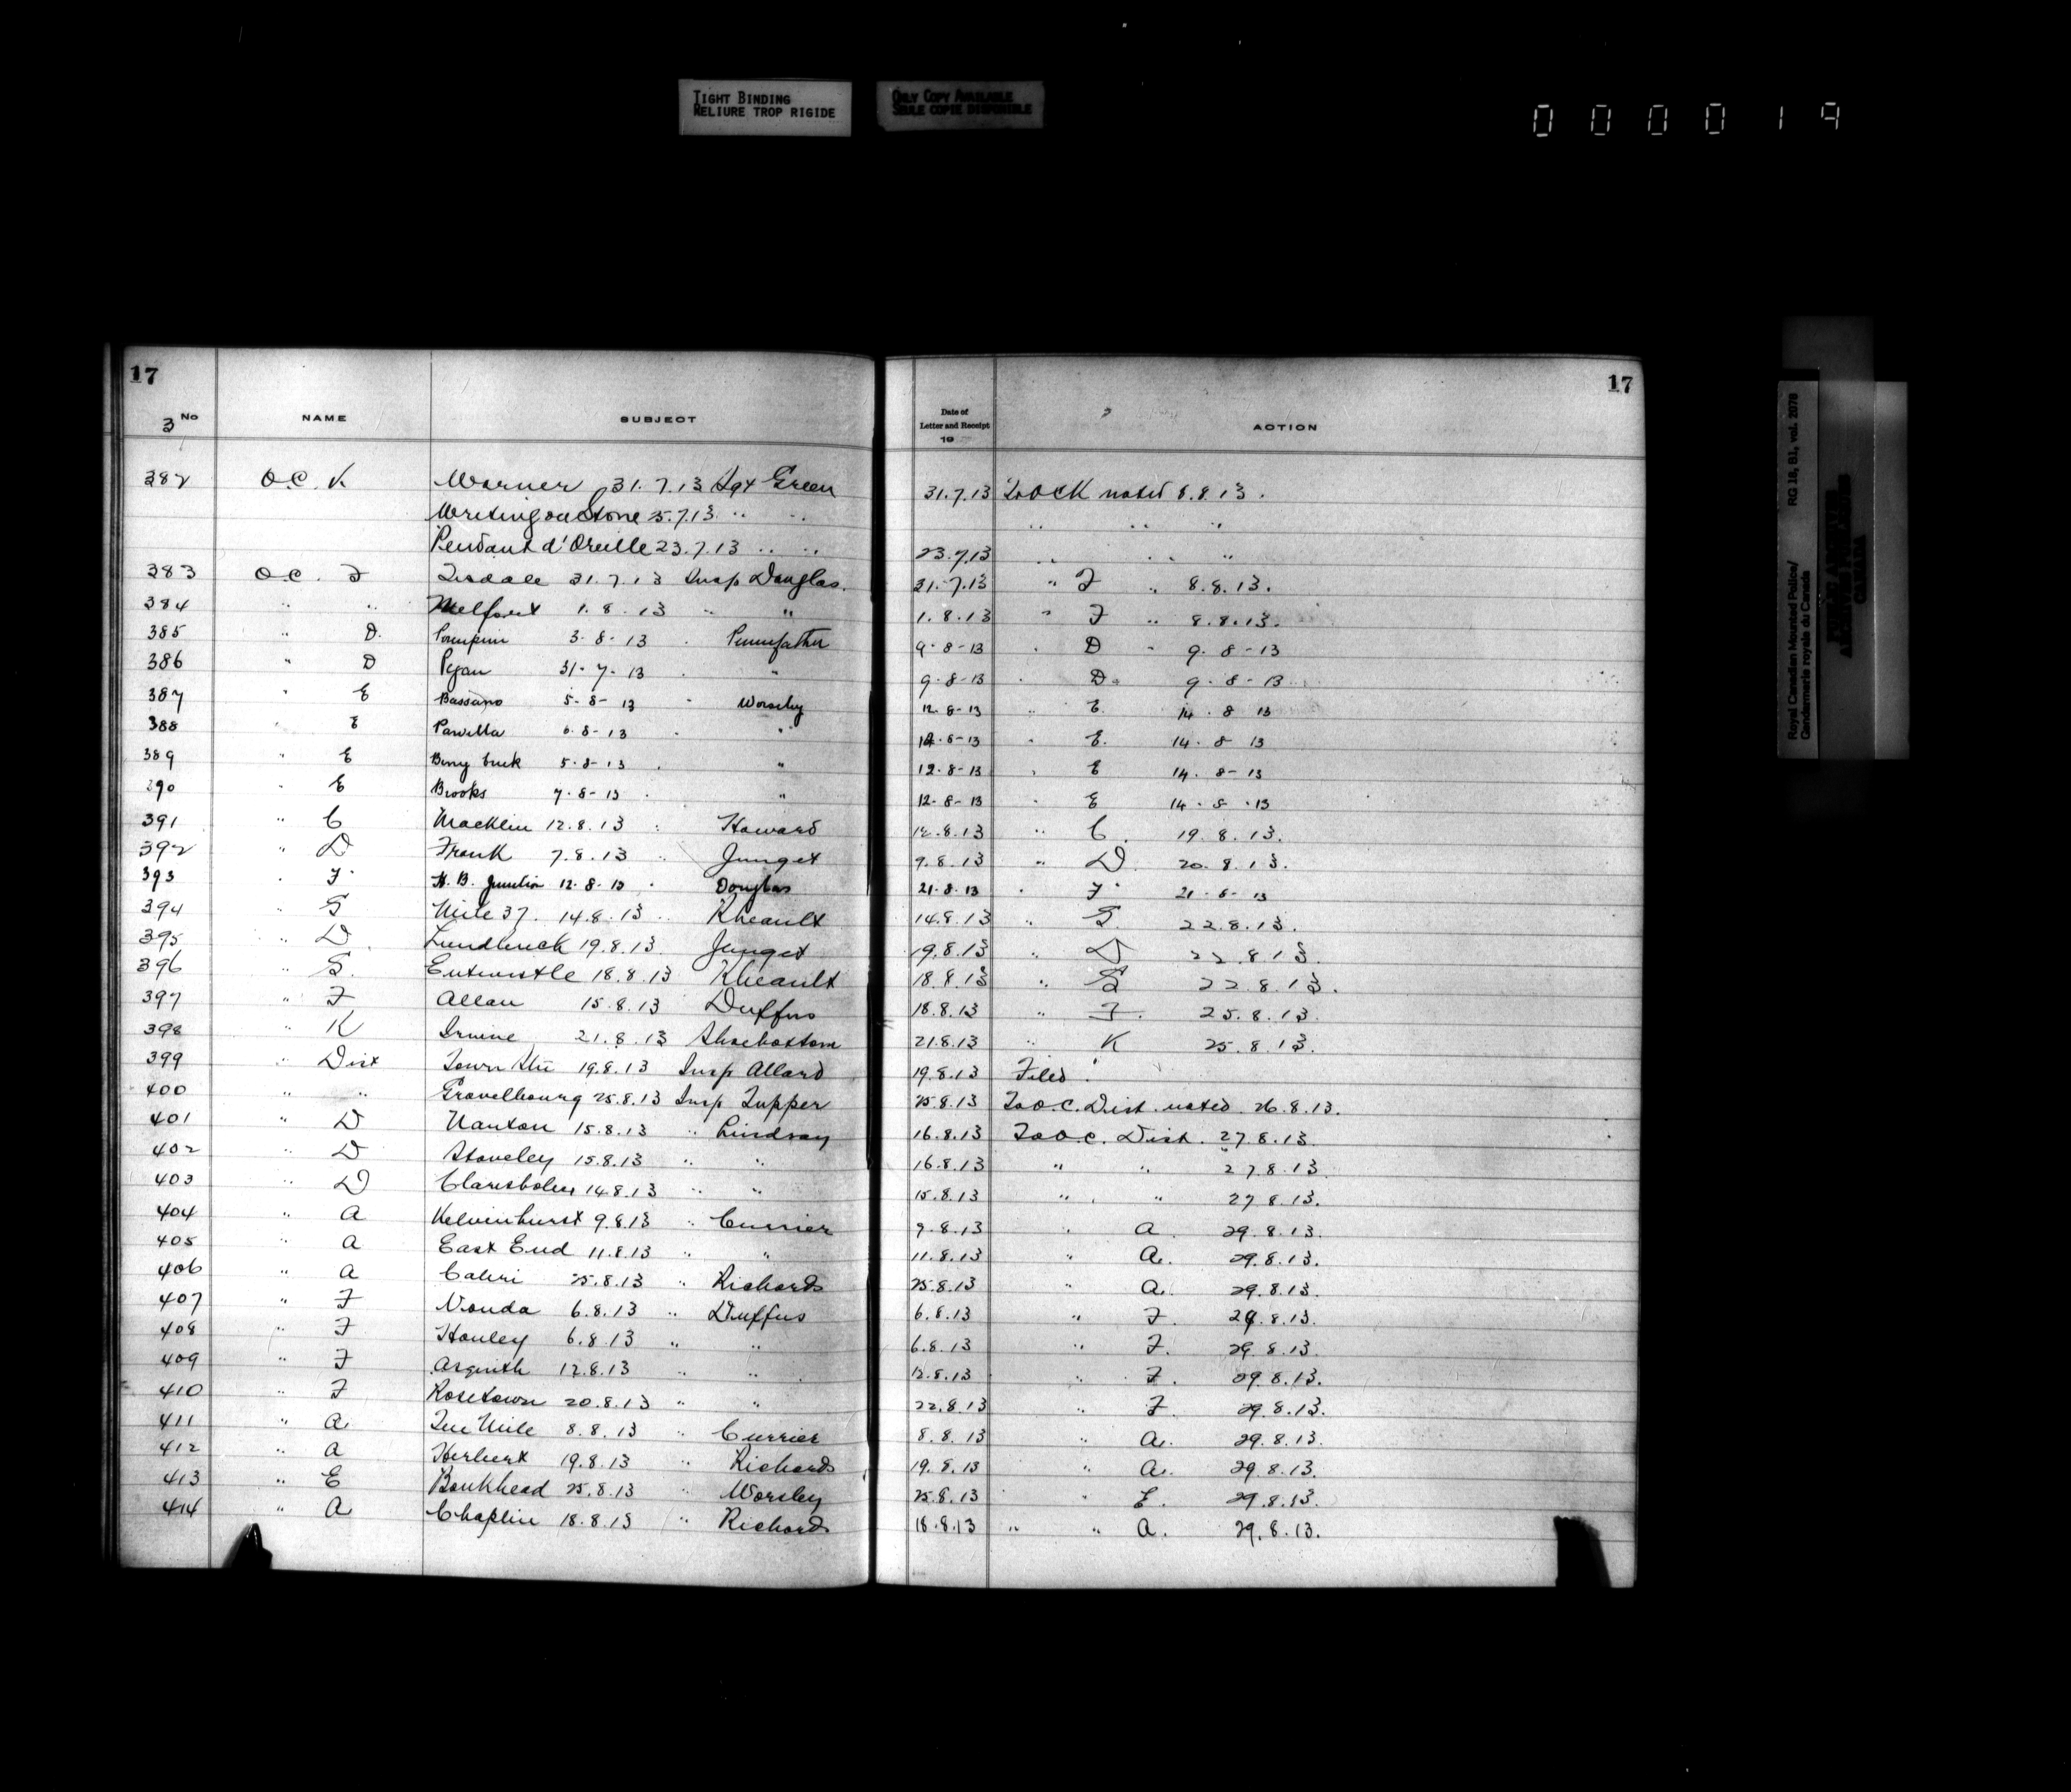 TIGHT BINDING
RELIURE TROP RIGIDE
ONLY COPY AVAILABLE
SEULE COPIE DISPONIBLE
000019
17 17
3 No NAME SUBJECT Date of Letter and Receipt 19 ACTION
382 O.C. K Warner 31.7.13 Sgt Green 31.7.13 To O C K noted 8.8.13.
Writing on Stone 25.7.13 " " " " "
Pendant d'Oreille 23.7.13 " " 23.7.13 " " "
383 O.C. F Tisdale 31.7.13 Insp Douglas. 31.7.13 " F " 8.8.13.
384 " " Melfort 1.8.13 " " 1.8.13 " F " 8.8.13.
385 " D. 3-8-13 " Pennefather 9-8-13 " D " 9-8-13
386 " D 31-7-13 " " 9-8-13 " D. 9-8-13
387 " E Bassano 5-8-13 " Worsley 12-8-13 " E. 14-8-13
388 " E 6-8-13 " " 12-8-13 " E. 14-8-13
389 " E 5-8-13 " " 12-8-13 " E 14-8-13
390 " E Brooks 7-8-13 " " 12-8-13 " E 14-8-13
391 " C Macklin 12.8.13 " Howard 12.8.13 " C. 19.8.13.
392 " D Frank 7.8.13 " Junget 9.8.13 " D 20.8.13.
393 " F. H.B. Junction 12-8-13 " Douglas 21-8-13 " F. 21-8-13
394 " G Mile 37. 14.8.13 " Rheault 14.8.13 " G. 22.8.13.
395 " D. Lundbreck 19.8.13 Junget 19.8.13 " D 22.8.13.
396 " G. Entwistle 18.8.13 Rheault 18.8.13 " G 22.8.13.
397 " F Allan 15.8.13 Duffus 18.8.13 " F. 25.8.13.
398 " K Irvine 21.8.13 Shoebottom 21.8.13 " K 25.8.13.
399 " Dist Town Stn 19.8.13 Insp Allard 19.8.13 Filed.
400 " " Gravelbourg 25.8.13 Insp Tupper 25.8.13 To O.C. Dist. noted 26.8.13.
401 " D Nanton 15.8.13 " Lindsay 16.8.13 To O.C. Dist. 27.8.13.
402 " D Staveley 15.8.13 " " 16.8.13 " " 27.8.13
403 " D Claresholm 14.8.13 " " 15.8.13 " " 27.8.13.
404 " A Kelvinhurst 9.8.13 " Currier 9.8.13 " A. 29.8.13.
405 " A East End 11.8.13 " " 11.8.13 " A. 29.8.13.
406 " A Cabri 25.8.13 " Richards 25.8.13 " A. 29.8.13.
407 " F Vonda 6.8.13 " Duffus 6.8.13 " F. 29.8.13.
408 " F Hanley 6.8.13 " " 6.8.13 " F. 29.8.13.
409 " F Asquith 12.8.13 " " 12.8.13 " F. 29.8.13.
410 " F Rosetown 20.8.13 " " 22.8.13 " F. 29.8.13.
411 " A. Ten Mile 8.8.13 " Currier 8.8.13 " A. 29.8.13.
412 " A Herbert 19.8.13 " Richards 19.8.13 " A. 29.8.13.
413 " E Bankhead 25.8.13 " Worsley 25.8.13 " E. 29.8.13.
414 " A Chaplin 18.8.13 " Richards 18.8.13 " " A. 29.8.13.
Royal Canadian Mounted Police/ RG 18, B1, vol. 2078
Gendarmerie royale du Canada
PUBLIC ARCHIVES
ARCHIVES PUBLIQUES
CANADA